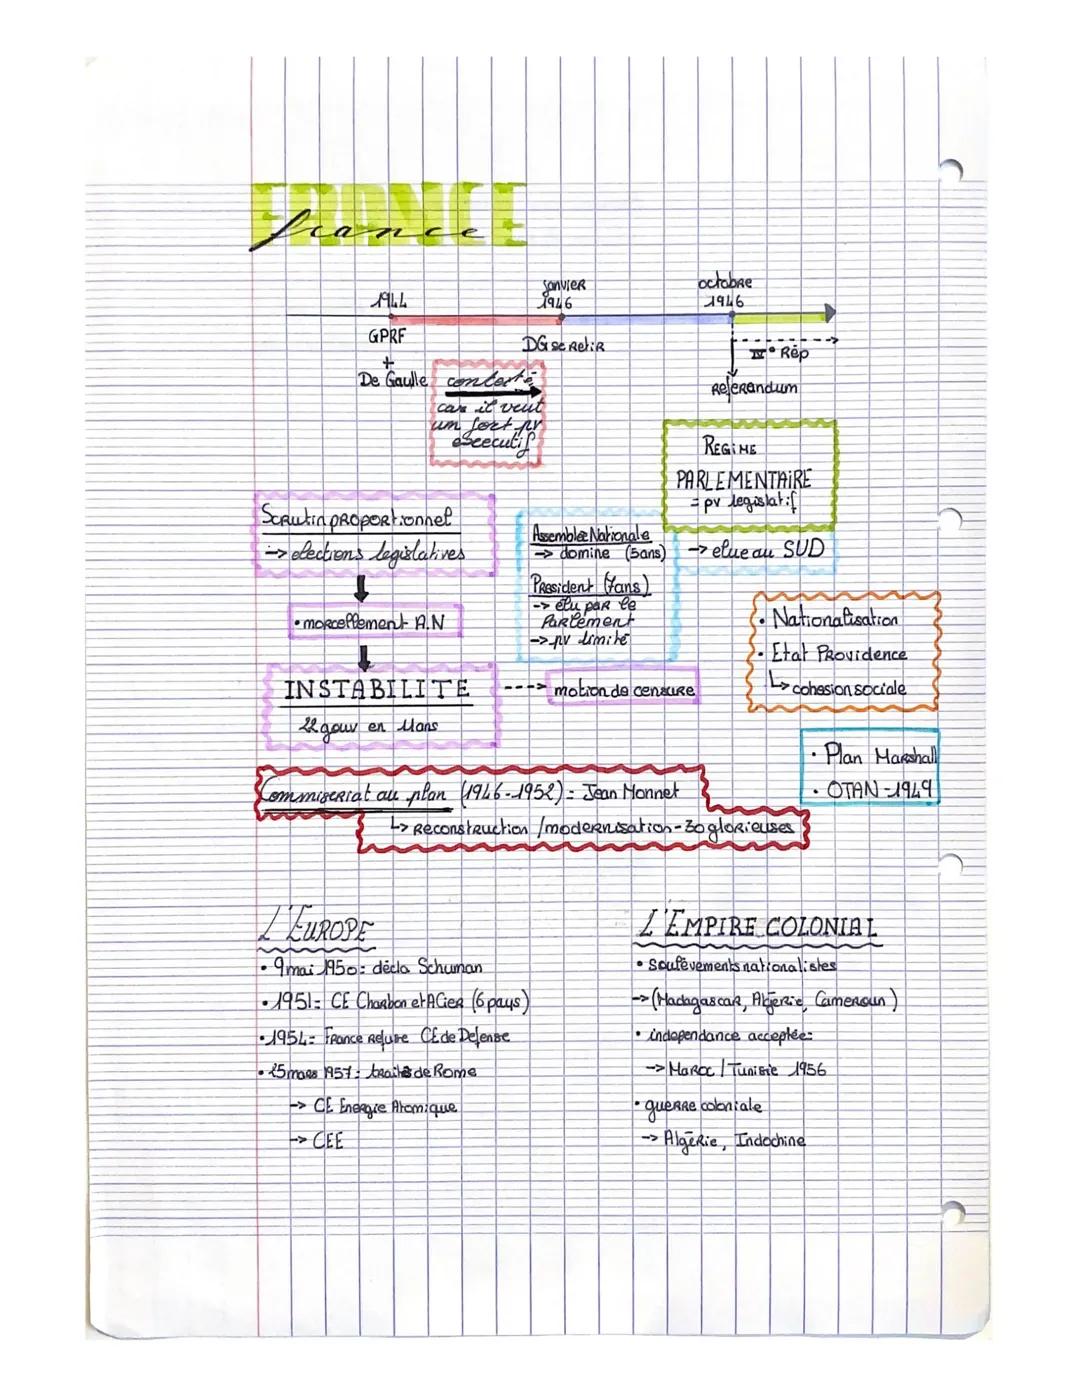 FRANCE
france
1944
janvier
1946
octobre
1946
GPRF
+
De Gaulle
DG se retir
IV° Rép
Referandum
contesté
car il veut
un fort pv
executif
REGIME
PARLEMENTAIRE
= pv legislatif
Scrutin proportionnel
-> elections legislatives
• morcellement A.N
INSTABILITE
22 gouv en 11ans
---> motion de censure
Assemblee Nationale
-> domine (5ans)
-> elue au SUD
President (7ans)
-> élu par le
Parlement
-> pv limité
• Nationalisation
• Etat Providence
↳ cohesion sociale
• Plan Marshall
• OTAN - 1949
Commiseriat au plan (1946-1952) = Jean Monnet
↳ Reconstruction / modernisation - 30 glorieuses
L'EUROPE
• 9 mai 1950 : décla Schuman
• 1951 = CE Charbon et ACier (6 pays)
• 1954 = France refuse CE de Defense
• 25 mars 1957 : traités de Rome
-> CE Energie Atomique
-> CEE
L'EMPIRE COLONIAL
• soulèvements nationalistes
-> (Madagascar, Algérie, Cameroun)
• independance acceptée :
-> Maroc / Tunisie 1956
• guerre coloniale
-> Algérie, Indochine